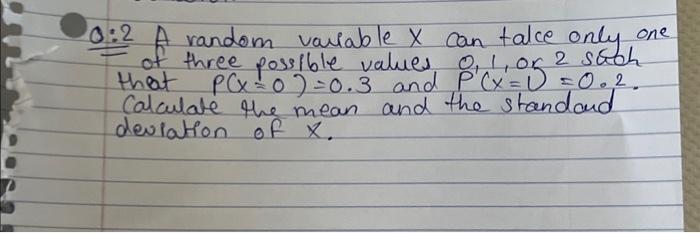 Q:2 A random variable X can take only one
of three possible values 0, 1, or 2 such
that P(x=0)=0.3 and P(x=1)=0.2.
Calculate the mean and the standard
deviation of X.